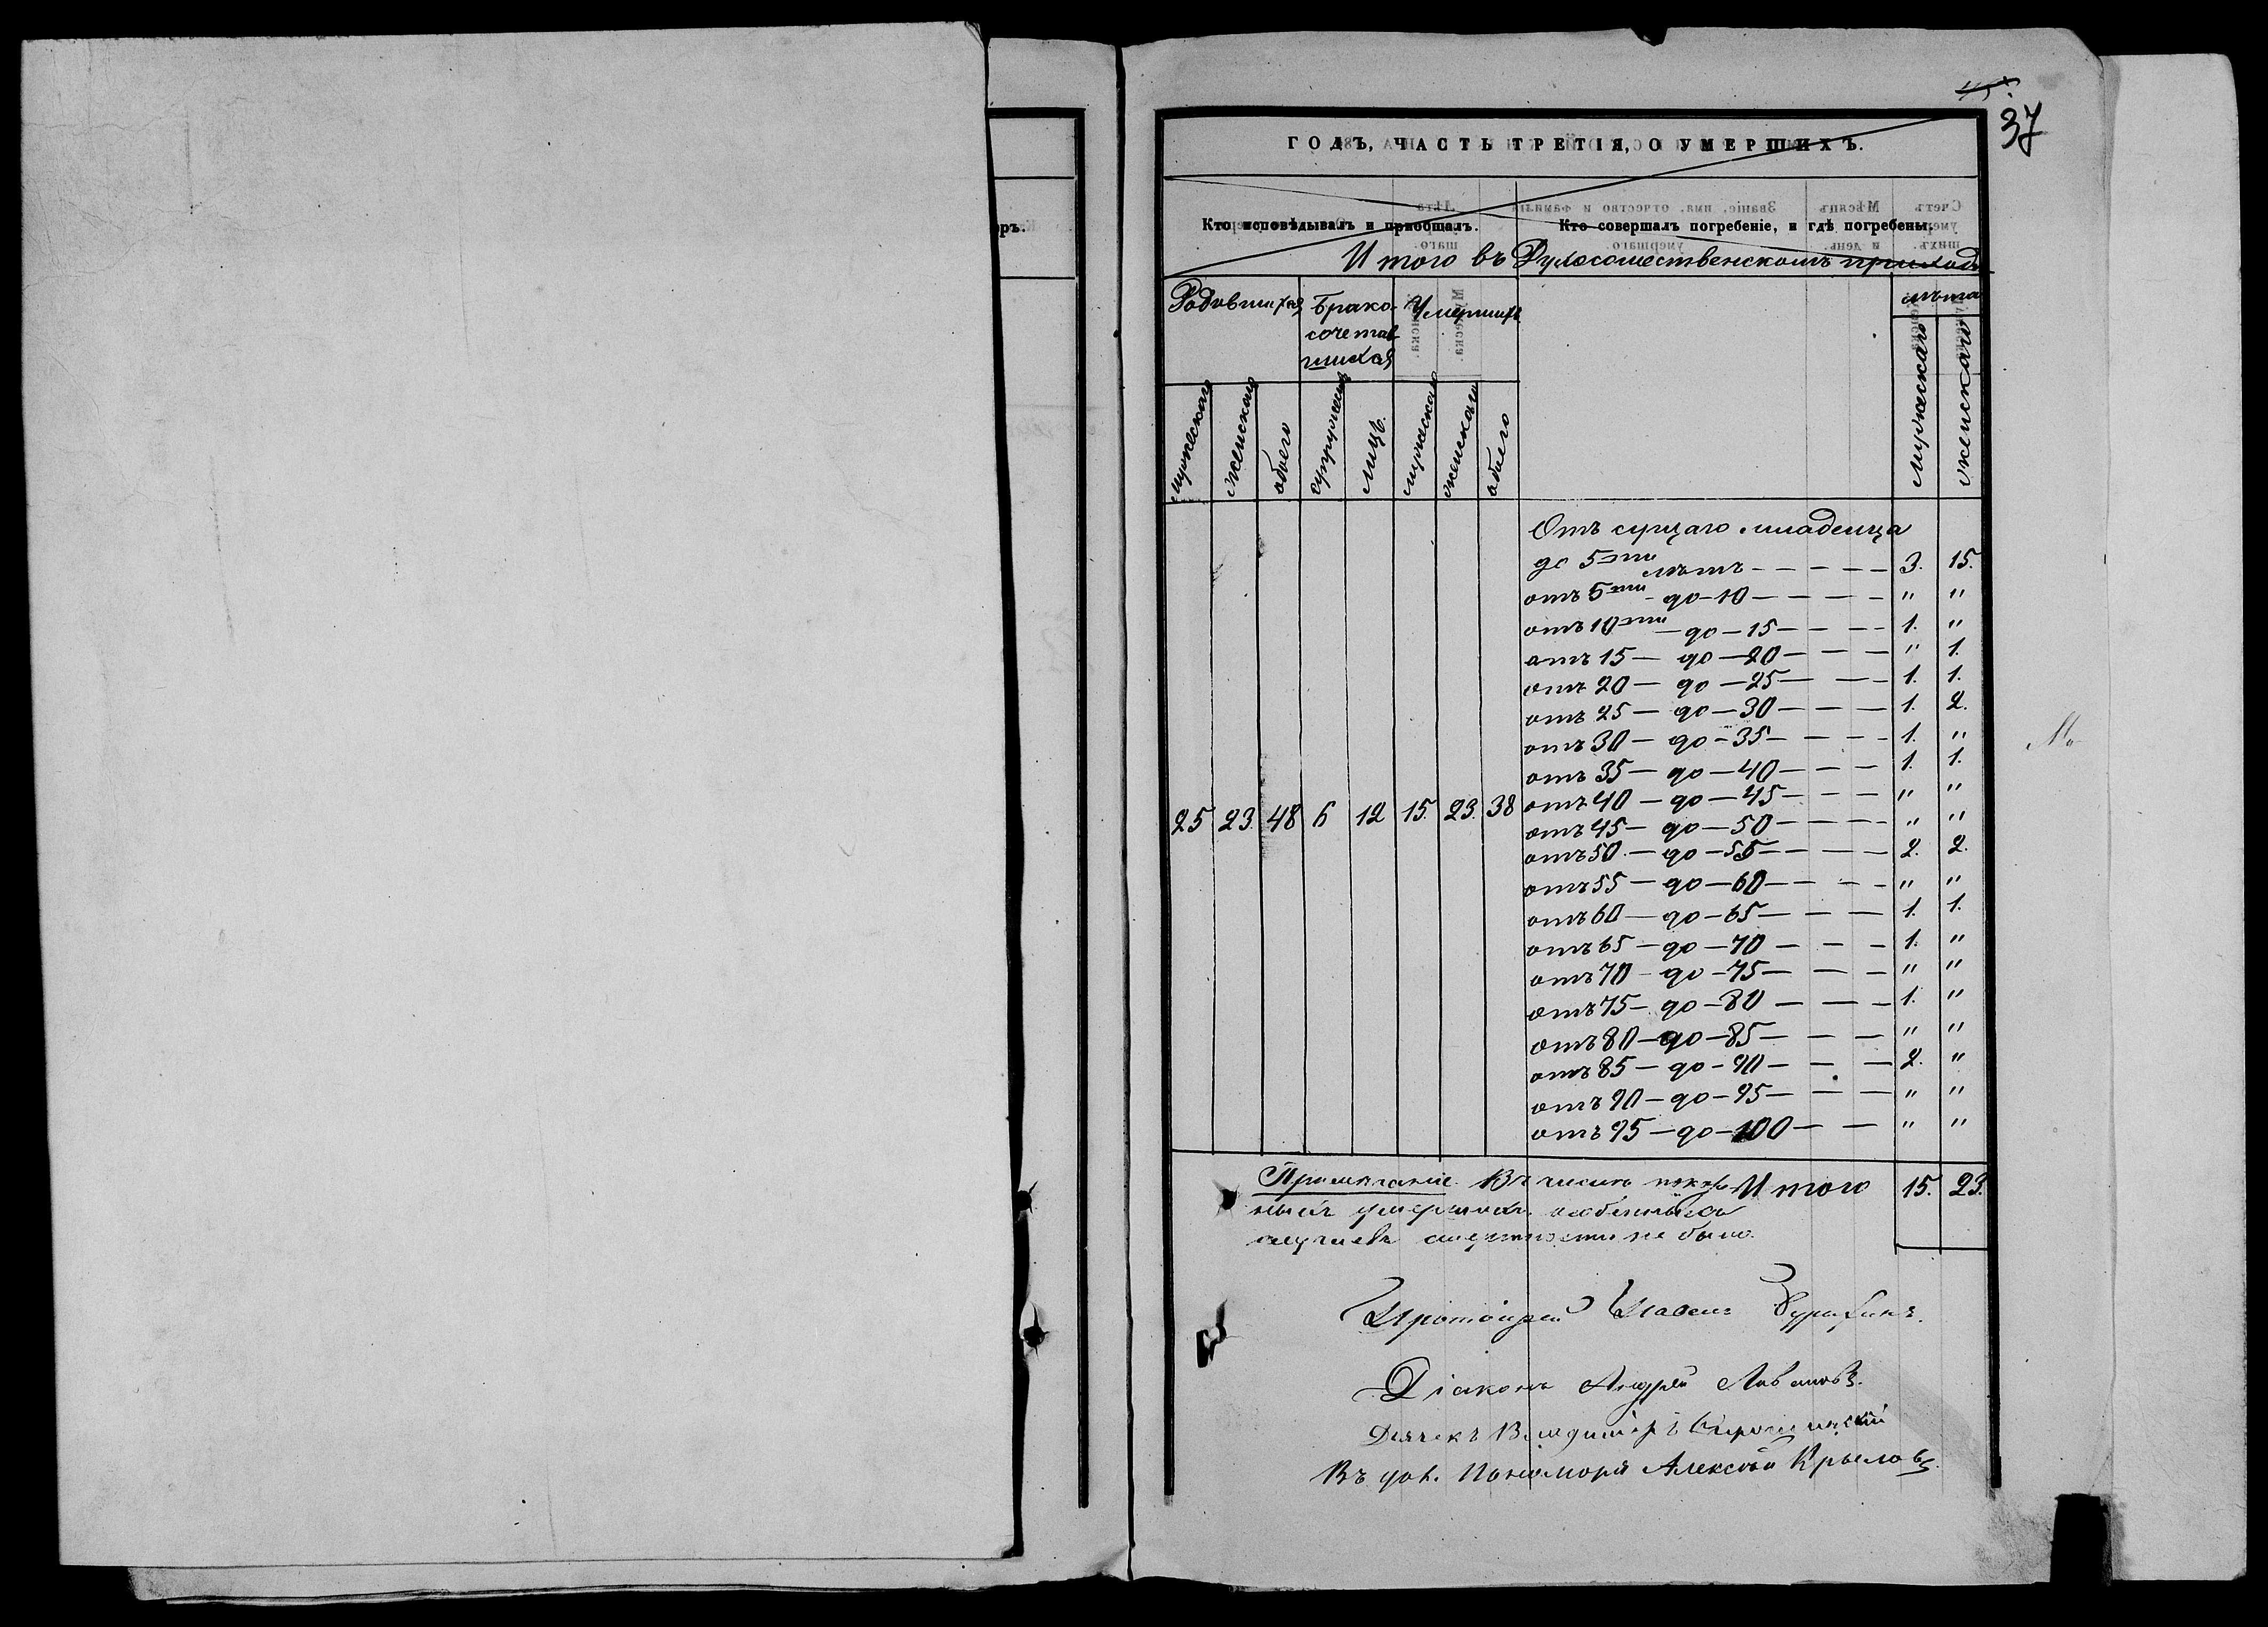 37
ГОДЪ, ЧАСТЬ ТРЕТІЯ, О УМЕРШИХЪ.
Кто исповѣдывалъ и пріобщалъ. Кто совершалъ погребеніе, и гдѣ погребены.
Итого въ приходѣ
Родившихся Брако- Умершихъ лѣта
сочетав
шихся
мужескаго женскаго обоего супружествъ лицъ мужескаго женскаго обоего мужескаго женскаго
Отъ сущаго младенца
до 5ти лѣтъ - - - - - 3. 15.
отъ 5ти - до - 10 - - - - " "
отъ 10ти - до - 15 - - - - 1. "
отъ 15 - до - 20 - - - " 1.
отъ 20 - до - 25 - - - 1. 1.
отъ 25 - до - 30 - - - 1. 2.
отъ 30 - до - 35 - - - - 1. "
отъ 35 - до - 40 - - - 1. 1.
отъ 40 - до - 45 - - - " "
25 23. 48 6 12 15. 23. 38
отъ 45 - до - 50 - - - - " "
отъ 50 - до - 55 - - - - 2. 2.
отъ 55 - до - 60 - - - - " "
отъ 60 - до - 65 - - - 1. 1.
отъ 65 - до - 70 - - - 1. "
отъ 70 - до - 75 - - - " "
отъ 75 - до - 80 - - - 1. "
отъ 80 - до - 85 - - - " "
отъ 85 - до - 90 - - - 2. "
отъ 90 - до - 95 - - - " "
отъ 95 - до - 100 - - " "
Примѣчаніе. Въ числѣ показан- Итого 15. 23.
ныхъ умершихъ особенныхъ
случаевъ смертности не было.
Протоіерей Павелъ
Діаконъ Андрей
Дьячекъ Владиміръ
Въ дол. Пономаря Алексѣй Крыловъ.